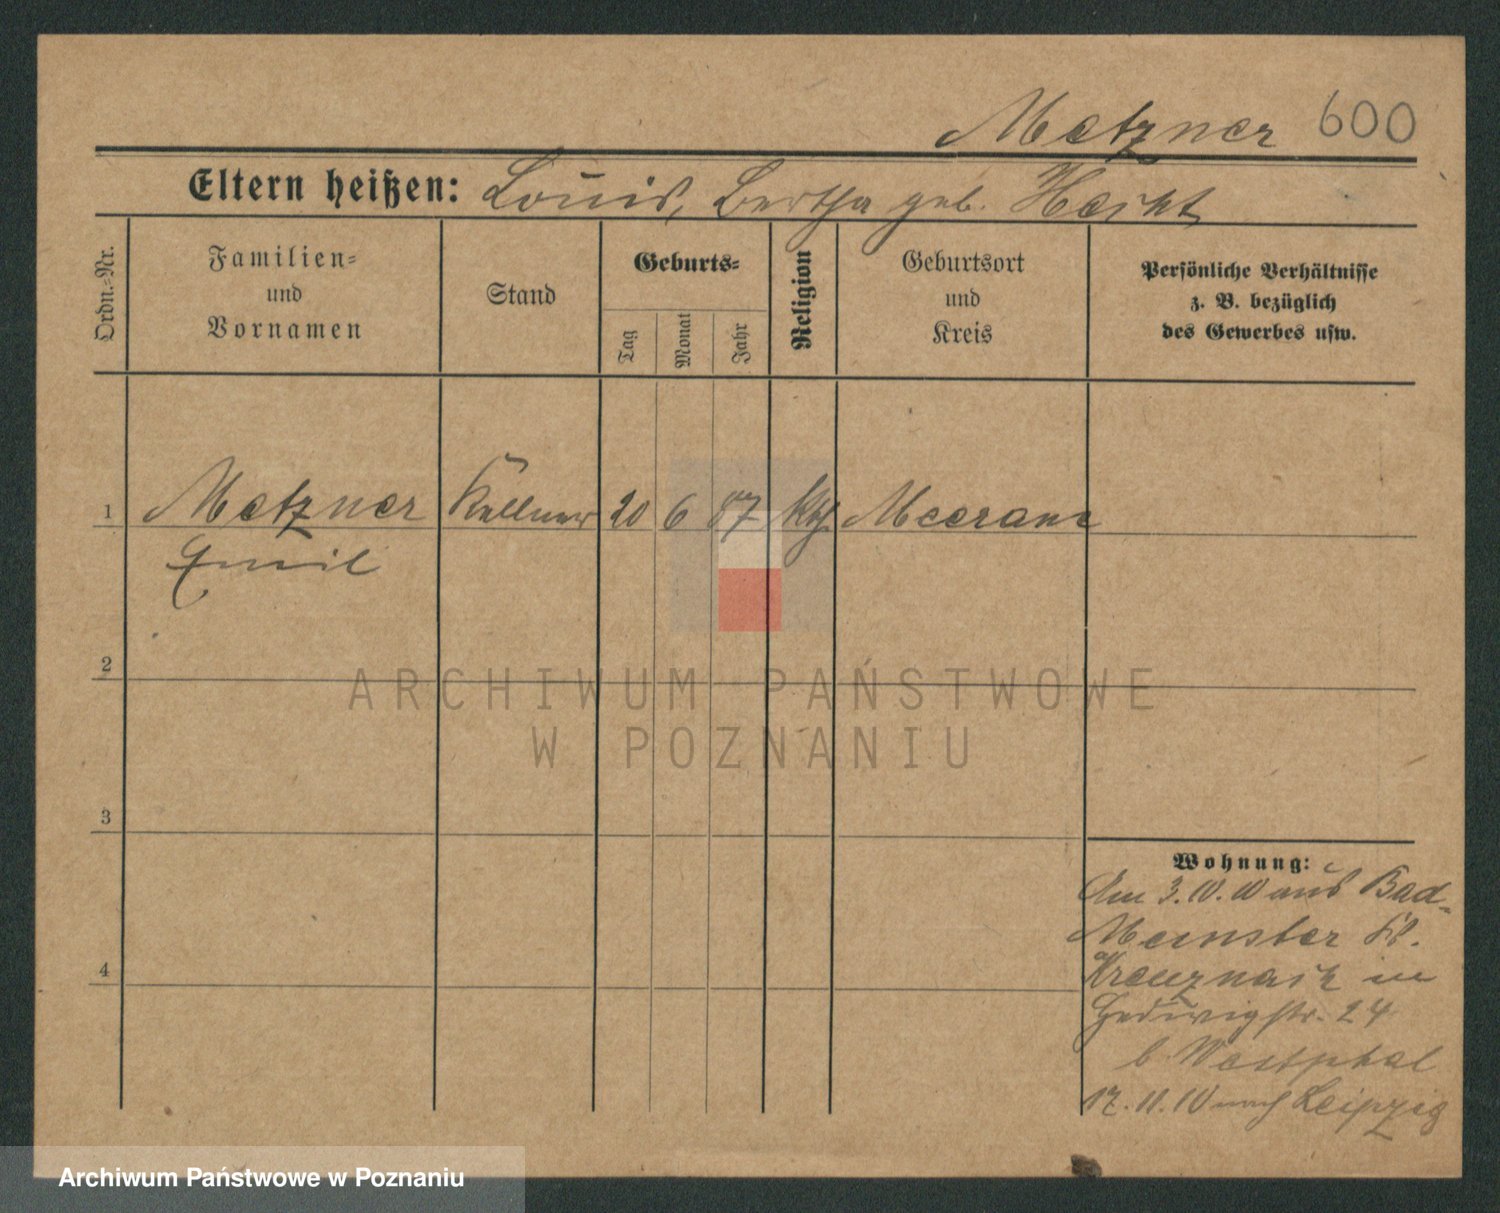 Metzner 600
Eltern heißen: Louis, Bertha geb. Hecht
Ordn.-Nr.
Familien- und Vornamen
Stand
Geburts-
Tag
Monat
Jahr
Religion
Geburtsort und Kreis
Persönliche Verhältnisse
z. B. bezüglich
des Gewerbes usw.
1 Metzner Kellner 20 6 87 Meerane
Emil
2
3
4
Wohnung:
Am 3. 10. 10 aus Bad-
Meunster
Kreuznach in
Hedwigstr. 24
b. Westphal
17. 11. 10 nach Leipzig
ARCHIWUM PAŃSTWOWE
W POZNANIU
Archiwum Państwowe w Poznaniu